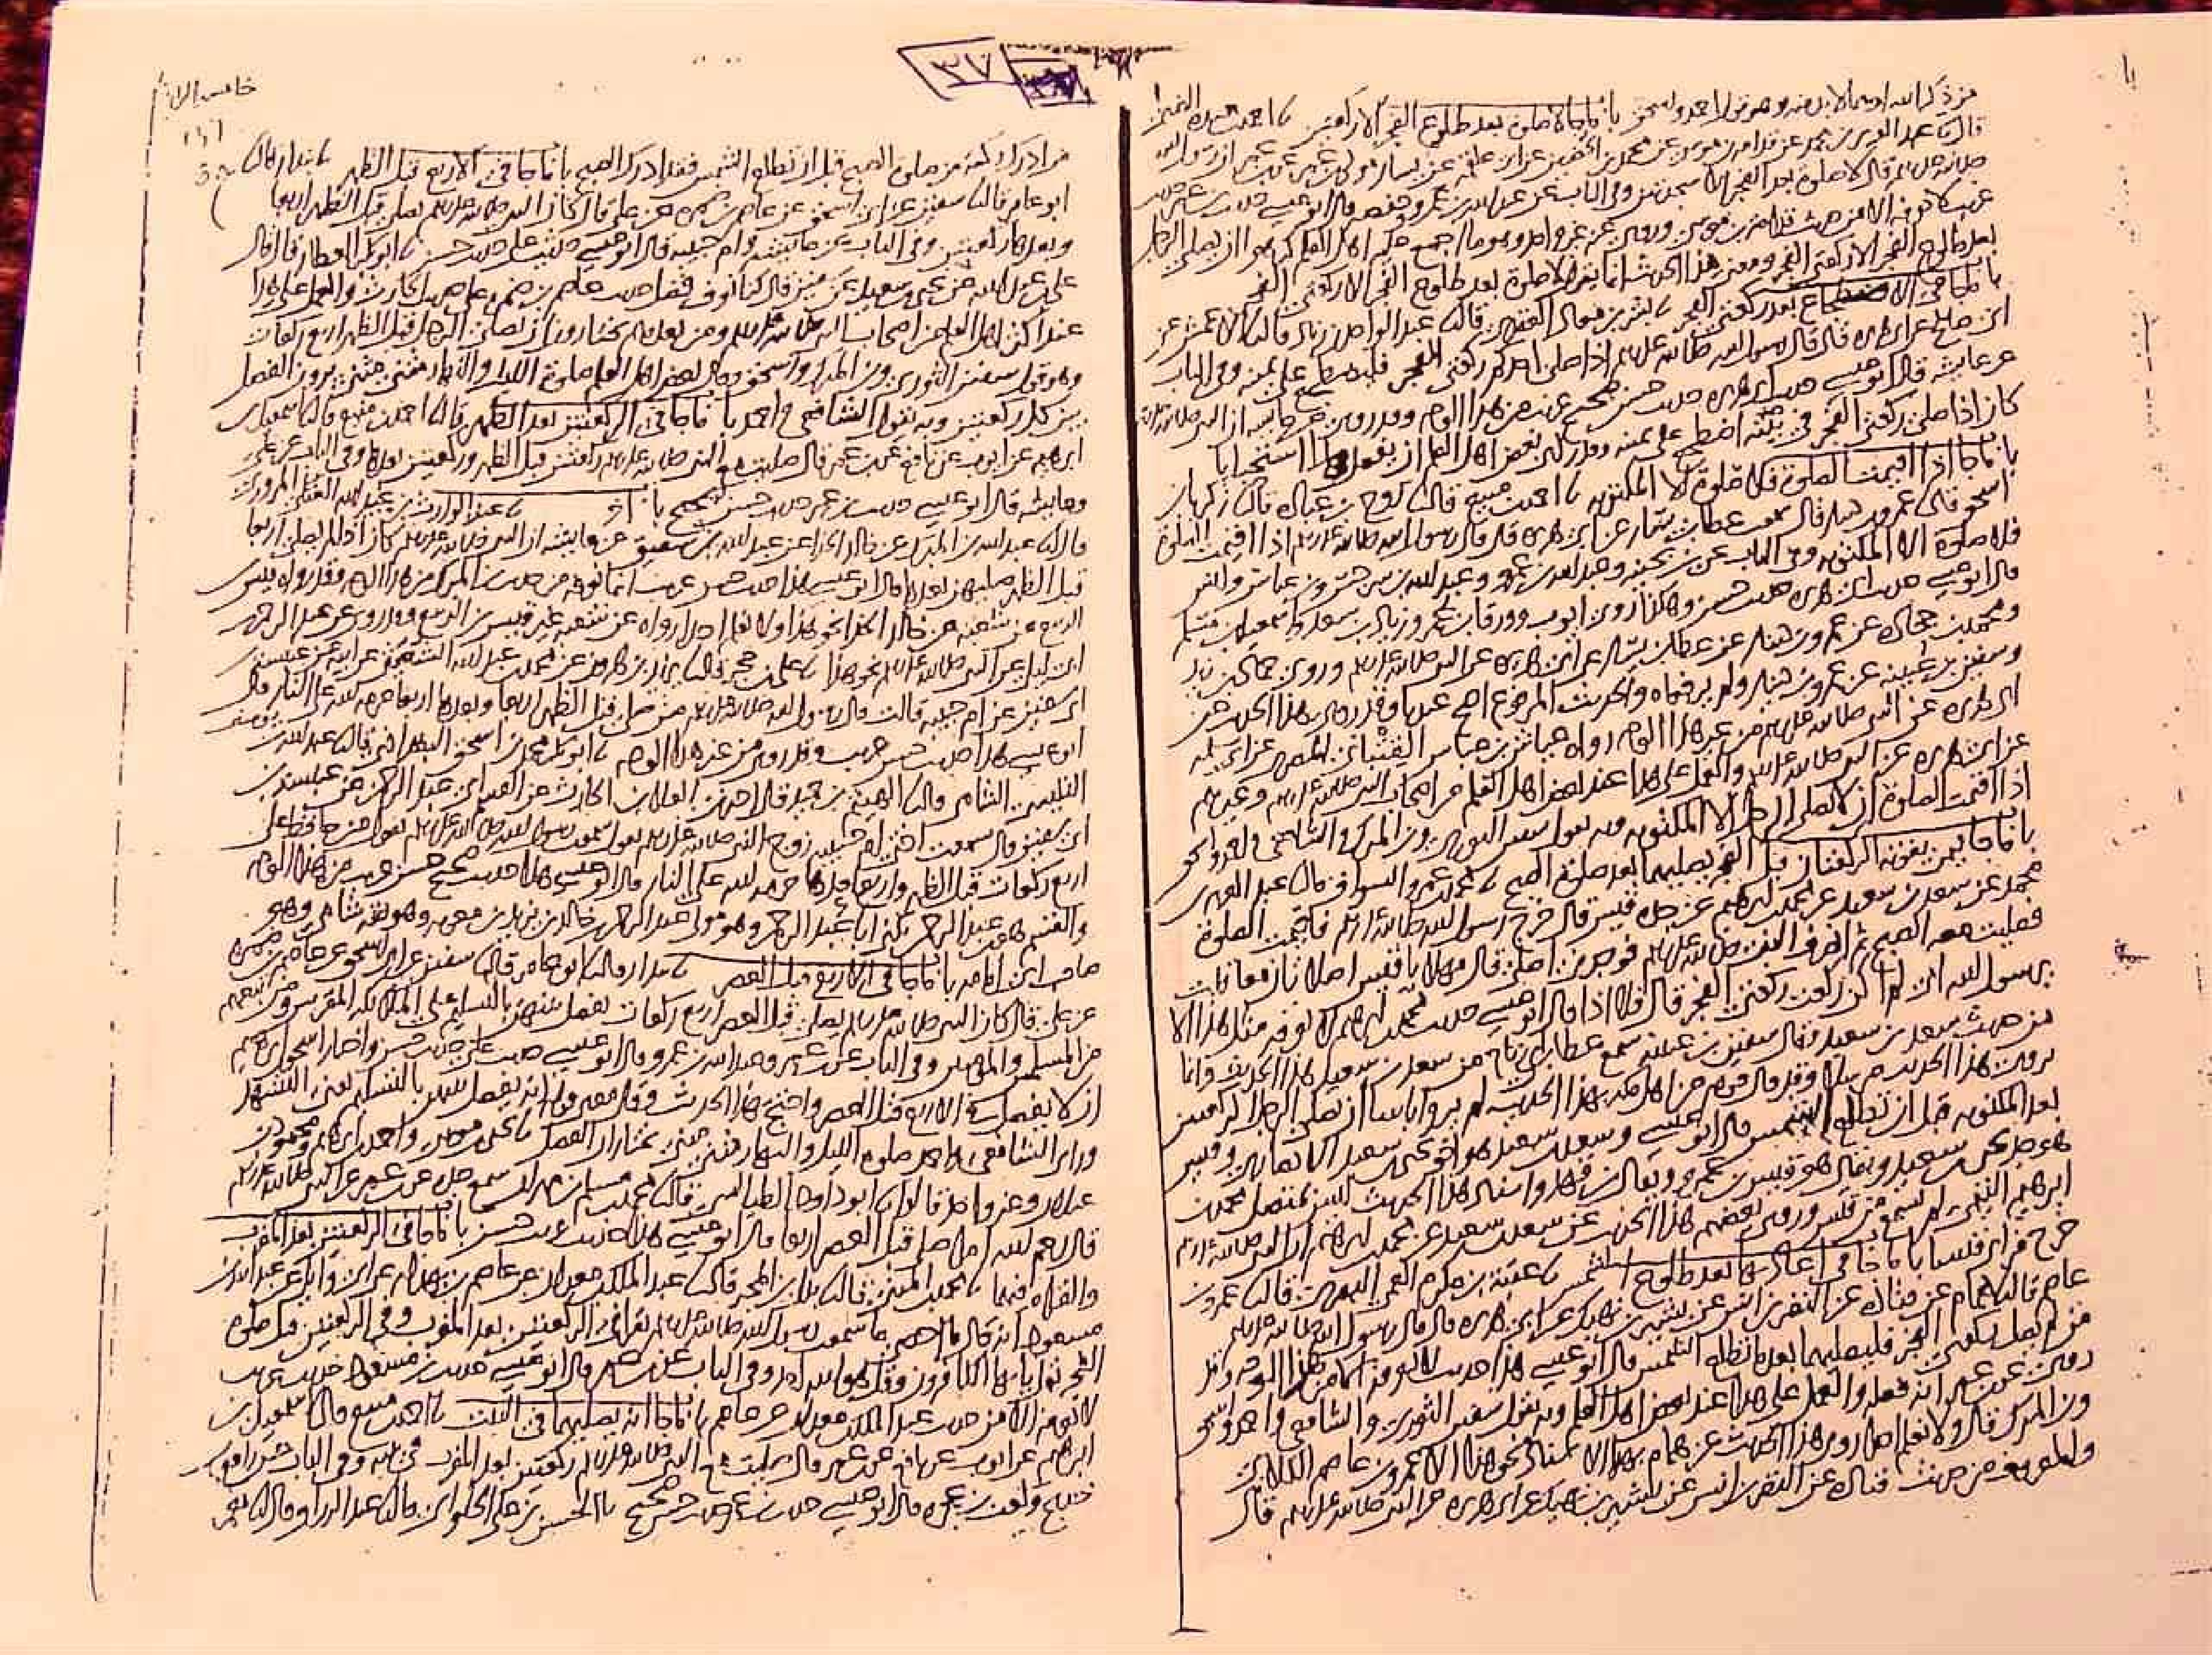 ٣٧
من ذكر الله احمد واسحق باب ما جا لا صلوة بعد طلوع الفجر الا ركعتين احمد بن عبدة الضبي
قال عبد العزيز بن محمد عن قدامة بن موسى عن محمد بن الحصين عن ابي علقمة عن يسار مولى ابن عمر عن ابن عمر ان رسول الله
صلى الله عليه وسلم قال لا صلوة بعد الفجر الا سجدتين وفي الباب عن عبد الله بن عمرو وحفصة قال ابو عيسى حديث ابن عمر حديث
غريب لا نعرفه الا من حديث قدامة بن موسى وروى عنه غير واحد وهو ما اجمع عليه اهل العلم كرهوا ان يصلي الرجل
بعد طلوع الفجر الا ركعتي الفجر ومعنى هذا الحديث انما يقول لا صلوة بعد طلوع الفجر الا ركعتي الفجر
باب ما جا في الاضطجاع بعد ركعتي الفجر بشر بن معاذ العقدي قال عبد الواحد بن زياد قال الاعمش عن
ابي صالح عن ابي هريرة قال قال رسول الله صلى الله عليه وسلم اذا صلى احدكم ركعتي الفجر فليضطجع على يمينه وفي الباب
عن عايشة قال ابو عيسى حديث ابي هريرة حديث حسن صحيح غريب من هذا الوجه وقد روى عن عايشة ان النبي صلى الله عليه
كان اذا صلى ركعتي الفجر في بيته اضطجع على يمينه وقد راى بعض اهل العلم ان يفعل هذا استحبابا
باب ما جا اذا اقيمت الصلوة فلا صلوة الا المكتوبة احمد بن منيع قال روح بن عبادة قال زكريا بن
اسحق قال عمرو بن دينار قال سمعت عطا بن يسار عن ابي هريرة قال قال رسول الله صلى الله عليه وسلم اذا اقيمت الصلوة
فلا صلوة الا المكتوبة وفي الباب عن ابن بحينة وعبد الله بن عمرو وعبد الله بن سرجس وابن عباس وانس
قال ابو عيسى حديث ابي هريرة حديث حسن وهكذا روى ايوب وورقا بن عمر وزياد بن سعد واسمعيل بن مسلم
ومحمد بن جحادة عن عمرو بن دينار عن عطا بن يسار عن ابي هريرة عن النبي صلى الله عليه وسلم وروى حماد بن زيد
وسفين بن عيينة عن عمرو بن دينار ولم يرفعاه والحديث المرفوع اصح عندنا وقد روى هذا الحديث عن
ابي هريرة عن النبي صلى الله عليه وسلم من غير هذا الوجه رواه عياش بن عباس القتباني المصري عن ابي سلمة
عن ابي هريرة عن النبي صلى الله عليه وسلم والعمل على هذا عند بعض اهل العلم من اصحاب النبي صلى الله عليه وسلم وغيرهم
اذا اقيمت الصلوة ان لا يصلي الرجل الا المكتوبة وبه يقول سفين الثوري وابن المبارك والشافعي واحمد واسحق
باب ما جا فيمن تفوته الركعتان قبل الفجر يصليهما بعد صلوة الصبح محمد بن عمرو السواق قال عبد العزيز بن
محمد عن سعد بن سعيد عن محمد بن ابرهيم عن جده قيس قال خرج رسول الله صلى الله عليه وسلم فاقيمت الصلوة
فصليت معه الصبح ثم انصرف النبي صلى الله عليه وسلم فوجدني اصلي قال مهلا يا قيس اصلاتان معا قلت
يرسول الله اني لم اكن ركعت ركعتي الفجر قال فلا اذا قال ابو عيسى حديث محمد بن ابرهيم لا نعرفه مثل هذا الا
من حديث سعد بن سعيد وقال سفين بن عيينة سمع عطا بن ابي رباح من سعد بن سعيد هذا الحديث وانما
يروى هذا الحديث مرسلا وقد قال قوم من اهل مكة بهذا الحديث لم يروا باسا ان يصلي الرجل الركعتين
بعد المكتوبة قبل ان تطلع الشمس قال ابو عيسى وسعد بن سعيد هو اخو يحيى بن سعيد الانصاري وقيس
هو جد يحيى بن سعيد ويقال هو قيس بن عمرو ويقال بن قهد واسناد هذا الحديث ليس بمتصل محمد بن
ابرهيم التيمي لم يسمع من قيس وروى بعضهم هذا الحديث عن سعد بن سعيد عن محمد بن ابرهيم ان النبي صلى الله عليه وسلم
خرج فراى قيسا باب ما جا في اعادتهما بعد طلوع الشمس عقبة بن مكرم العمي البصري قال عمرو بن
عاصم قال همام عن قتادة عن النضر بن انس عن بشير بن نهيك عن ابي هريرة قال قال رسول الله صلى الله عليه وسلم
من لم يصل ركعتي الفجر فليصلهما بعد ما تطلع الشمس قال ابو عيسى هذا حديث لا نعرفه الا من هذا الوجه وقد
روى عن ابن عمر انه فعله والعمل على هذا عند بعض اهل العلم وبه يقول سفين الثوري والشافعي واحمد واسحق
وابن المبارك قال ولا نعلم احدا روى هذا الحديث عن همام بهذا الاسناد نحو هذا الا عمرو بن عاصم الكلابي
والمعروف من حديث قتادة عن النضر بن انس عن بشير بن نهيك عن ابي هريرة عن النبي صلى الله عليه وسلم قال
من ادرك ركعة من صلوة الصبح قبل ان تطلع الشمس فقد ادرك الصبح باب ما جا في الاربع قبل الظهر بندار قال
ابو عامر قال سفين عن ابي اسحق عن عاصم بن ضمرة عن علي قال كان النبي صلى الله عليه وسلم يصلي قبل الظهر اربعا
وبعدها ركعتين وفي الباب عن عايشة وام حبيبة قال ابو عيسى حديث علي حديث حسن ابو بكر العطار قال قال
علي بن عبد الله عن يحيى بن سعيد عن سفين قال كنا نعرف فضل حديث عاصم بن ضمرة على حديث الحارث والعمل على هذا
عند اكثر اهل العلم من اصحاب النبي صلى الله عليه وسلم ومن بعدهم يختارون ان يصلي الرجل قبل الظهر اربع ركعات
وهو قول سفين الثوري وابن المبارك واسحق وقال بعض اهل العلم صلوة الليل والنهار مثنى مثنى يرون الفصل
بين كل ركعتين وبه يقول الشافعي واحمد باب ما جا في الركعتين بعد الظهر قال احمد بن منيع قال اسمعيل بن
ابرهيم عن ايوب عن نافع عن ابن عمر قال صليت مع النبي صلى الله عليه وسلم ركعتين قبل الظهر وركعتين بعدها وفي الباب عن علي
وعايشة قال ابو عيسى حديث ابن عمر حديث حسن صحيح باب اخر عبد الوارث بن عبيد الله العتكي المروزي
قال عبد الله بن المبارك عن خالد الحذا عن عبد الله بن شقيق عن عايشة ان النبي صلى الله عليه وسلم كان اذا لم يصل اربعا
قبل الظهر صليهن بعدها قال ابو عيسى هذا حديث حسن غريب انما نعرفه من حديث ابن المبارك من هذا الوجه وقد رواه قيس بن
الربيع عن شعبة عن خالد الحذا نحو هذا ولا نعلم احدا رواه عن شعبة غير قيس بن الربيع وقد روى عن عبد الرحمن
ابن ابي ليلى عن النبي صلى الله عليه وسلم نحو هذا علي بن حجر قال يزيد بن هرون عن محمد بن عبد الله الشعيثي عن ابيه عن عنبسة بن
ابي سفين عن ام حبيبة قالت قال رسول الله صلى الله عليه وسلم من صلى قبل الظهر اربعا وبعدها اربعا حرمه الله على النار قال
ابو عيسى هذا حديث حسن غريب وقد روى من غير هذا الوجه ابو بكر محمد بن اسحق البغدادي قال عبد الله بن يوسف
التنيسي الشامي قال الهيثم بن حميد قال اخبرني العلا بن الحارث عن القسم ابي عبد الرحمن عن عنبسة بن
ابي سفين قال سمعت اختي ام حبيبة زوج النبي صلى الله عليه وسلم تقول سمعت رسول الله صلى الله عليه وسلم يقول من حافظ على
اربع ركعات قبل الظهر واربع بعدها حرمه الله على النار قال ابو عيسى هذا حديث صحيح حسن غريب من هذا الوجه
والقسم هو ابن عبد الرحمن يكنى ابا عبد الرحمن وهو مولى عبد الرحمن بن خالد بن يزيد بن معوية وهو ثقة شامي وهو
صاحب ابي امامة باب ما جا في الاربع قبل العصر بندار قال ابو عامر قال سفين عن ابي اسحق عن عاصم بن ضمرة
عن علي قال كان النبي صلى الله عليه وسلم يصلي قبل العصر اربع ركعات يفصل بينهن بالتسليم على الملايكة المقربين ومن تبعهم
من المسلمين والمؤمنين وفي الباب عن ابن عمر وعبد الله بن عمرو قال ابو عيسى حديث علي حديث حسن واختار اسحق بن ابرهيم
ان لا يفصل في الاربع قبل العصر واحتج بهذا الحديث وقال معنى قوله انه يفصل بينهن بالتسليم يعني التشهد
وراى الشافعي واحمد صلوة الليل والنهار مثنى مثنى يختاران الفصل يحيى بن موسى واحمد بن ابرهيم ومحمود بن
غيلان وغير واحد قالوا ابو داود الطيالسي قال محمد بن مسلم بن مهران سمع جده عن ابن عمر عن النبي صلى الله عليه وسلم
قال رحم الله امرا صلى قبل العصر اربعا قال ابو عيسى هذا حديث غريب حسن باب ما جا في الركعتين بعد المغرب
والقراة فيهما محمد بن المثنى قال بدل بن المحبر قال عبد الملك بن معدان عن عاصم بن بهدلة عن ابي وايل عن عبد الله بن
مسعود انه قال ما احصي ما سمعت رسول الله صلى الله عليه وسلم يقرا في الركعتين بعد المغرب وفي الركعتين قبل صلوة
الفجر بقل يا ايها الكافرون وقل هو الله احد وفي الباب عن ابن عمر قال ابو عيسى حديث ابن مسعود حديث غريب
لا نعرفه الا من حديث عبد الملك بن معدان عن عاصم باب ما جا انه يصليهما في البيت احمد بن منيع قال اسمعيل بن
ابرهيم عن ايوب عن نافع عن ابن عمر قال صليت مع النبي صلى الله عليه وسلم ركعتين بعد المغرب في بيته وفي الباب عن رافع بن
خديج وكعب بن عجرة قال ابو عيسى حديث ابن عمر حديث حسن صحيح الحسن بن علي الحلواني قال عبد الرزاق قال معمر